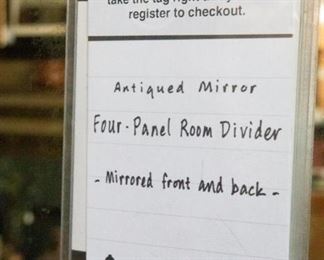 take the tag
register to checkout.
Antiqued Mirror
Four-Panel Room Divider
- Mirrored front and back -